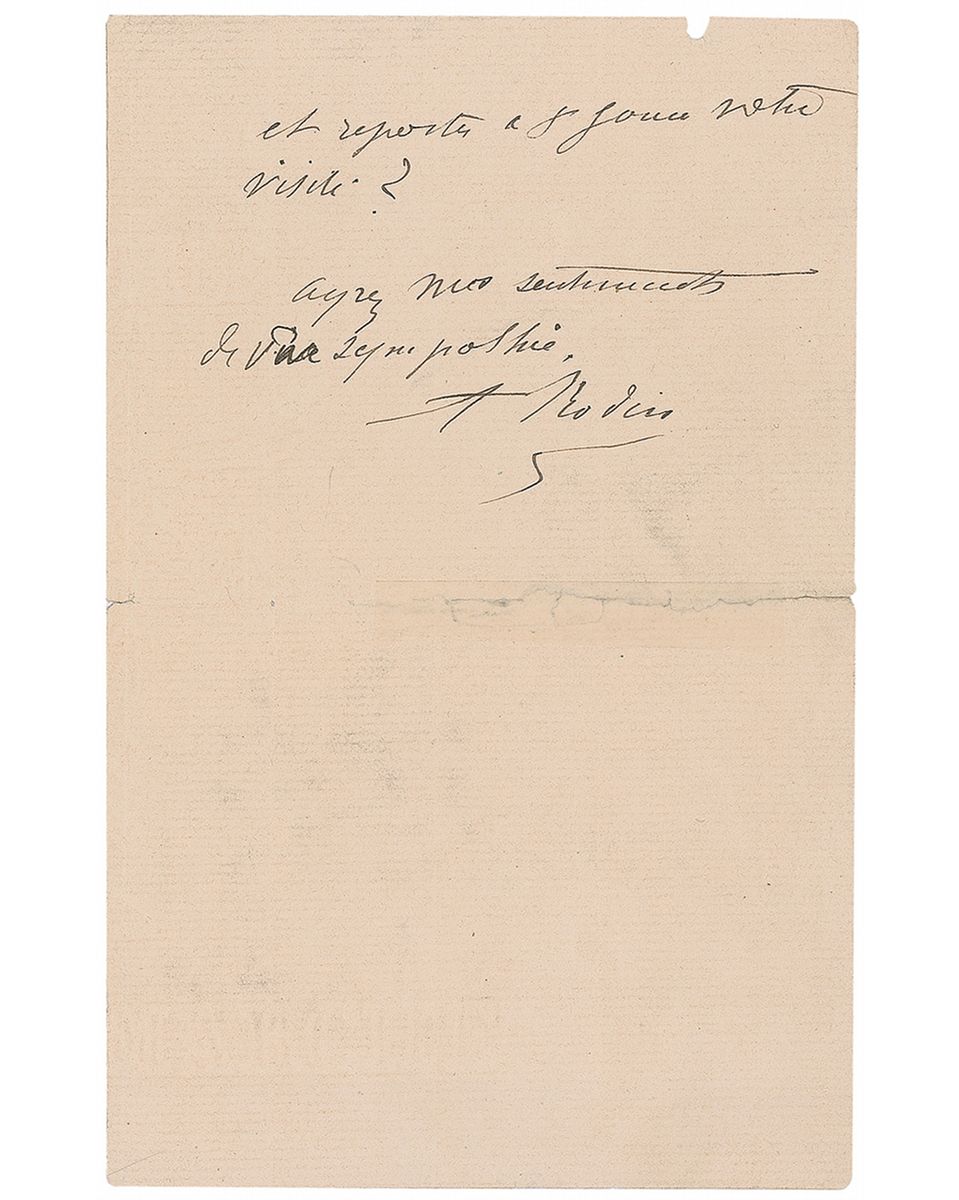 et reporter a 8 jours votre
visite ?
ayez mes sentiments
de vive sympathie.
A Rodin